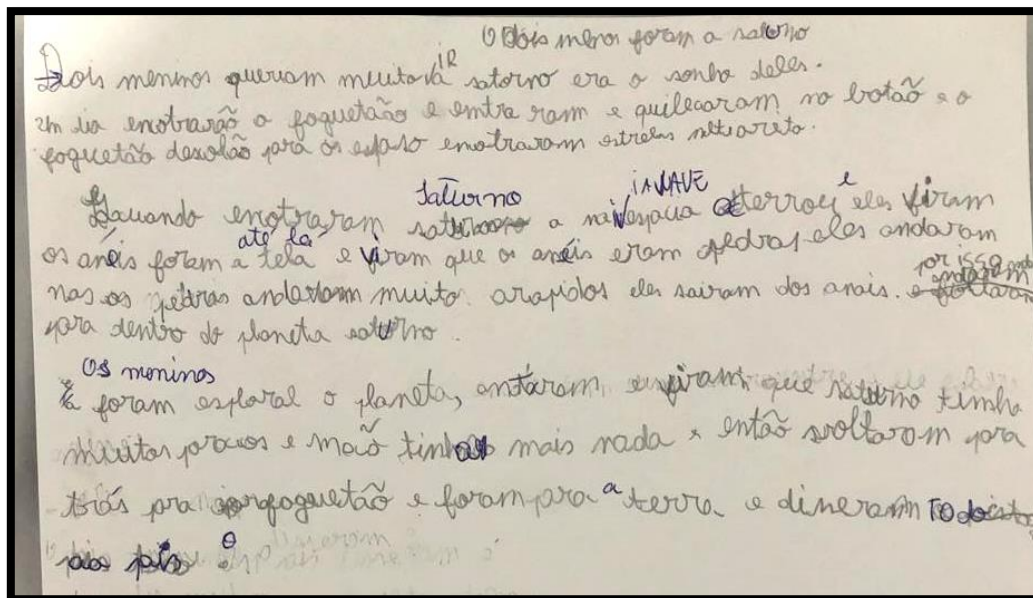 O Dois menos foram a saturno
Dois meninos queriam muito IR satorno era o sonho deles.
um dia enotrarão o foguetão e entra ram e quilecaram no botão e o
foguetão dexolão para os espaso enotraram estrelas
Saturno IANAVE e
Quando enotraram a aterrou eles viram
até lá
os anéis foram a tela e viram que os anéis eram pedras eles andaram
por isso
nas os pedras andaram muito arapidos eles sairam dos anais.
para dentro do planeta saturno.
Os meninos
foram esploral o planeta, antaram e viram que saturno timha
muitos e mão tinha mais nada e então voltaram para
trás pra o foguetão e foram pra a terra e diseram
aos pis